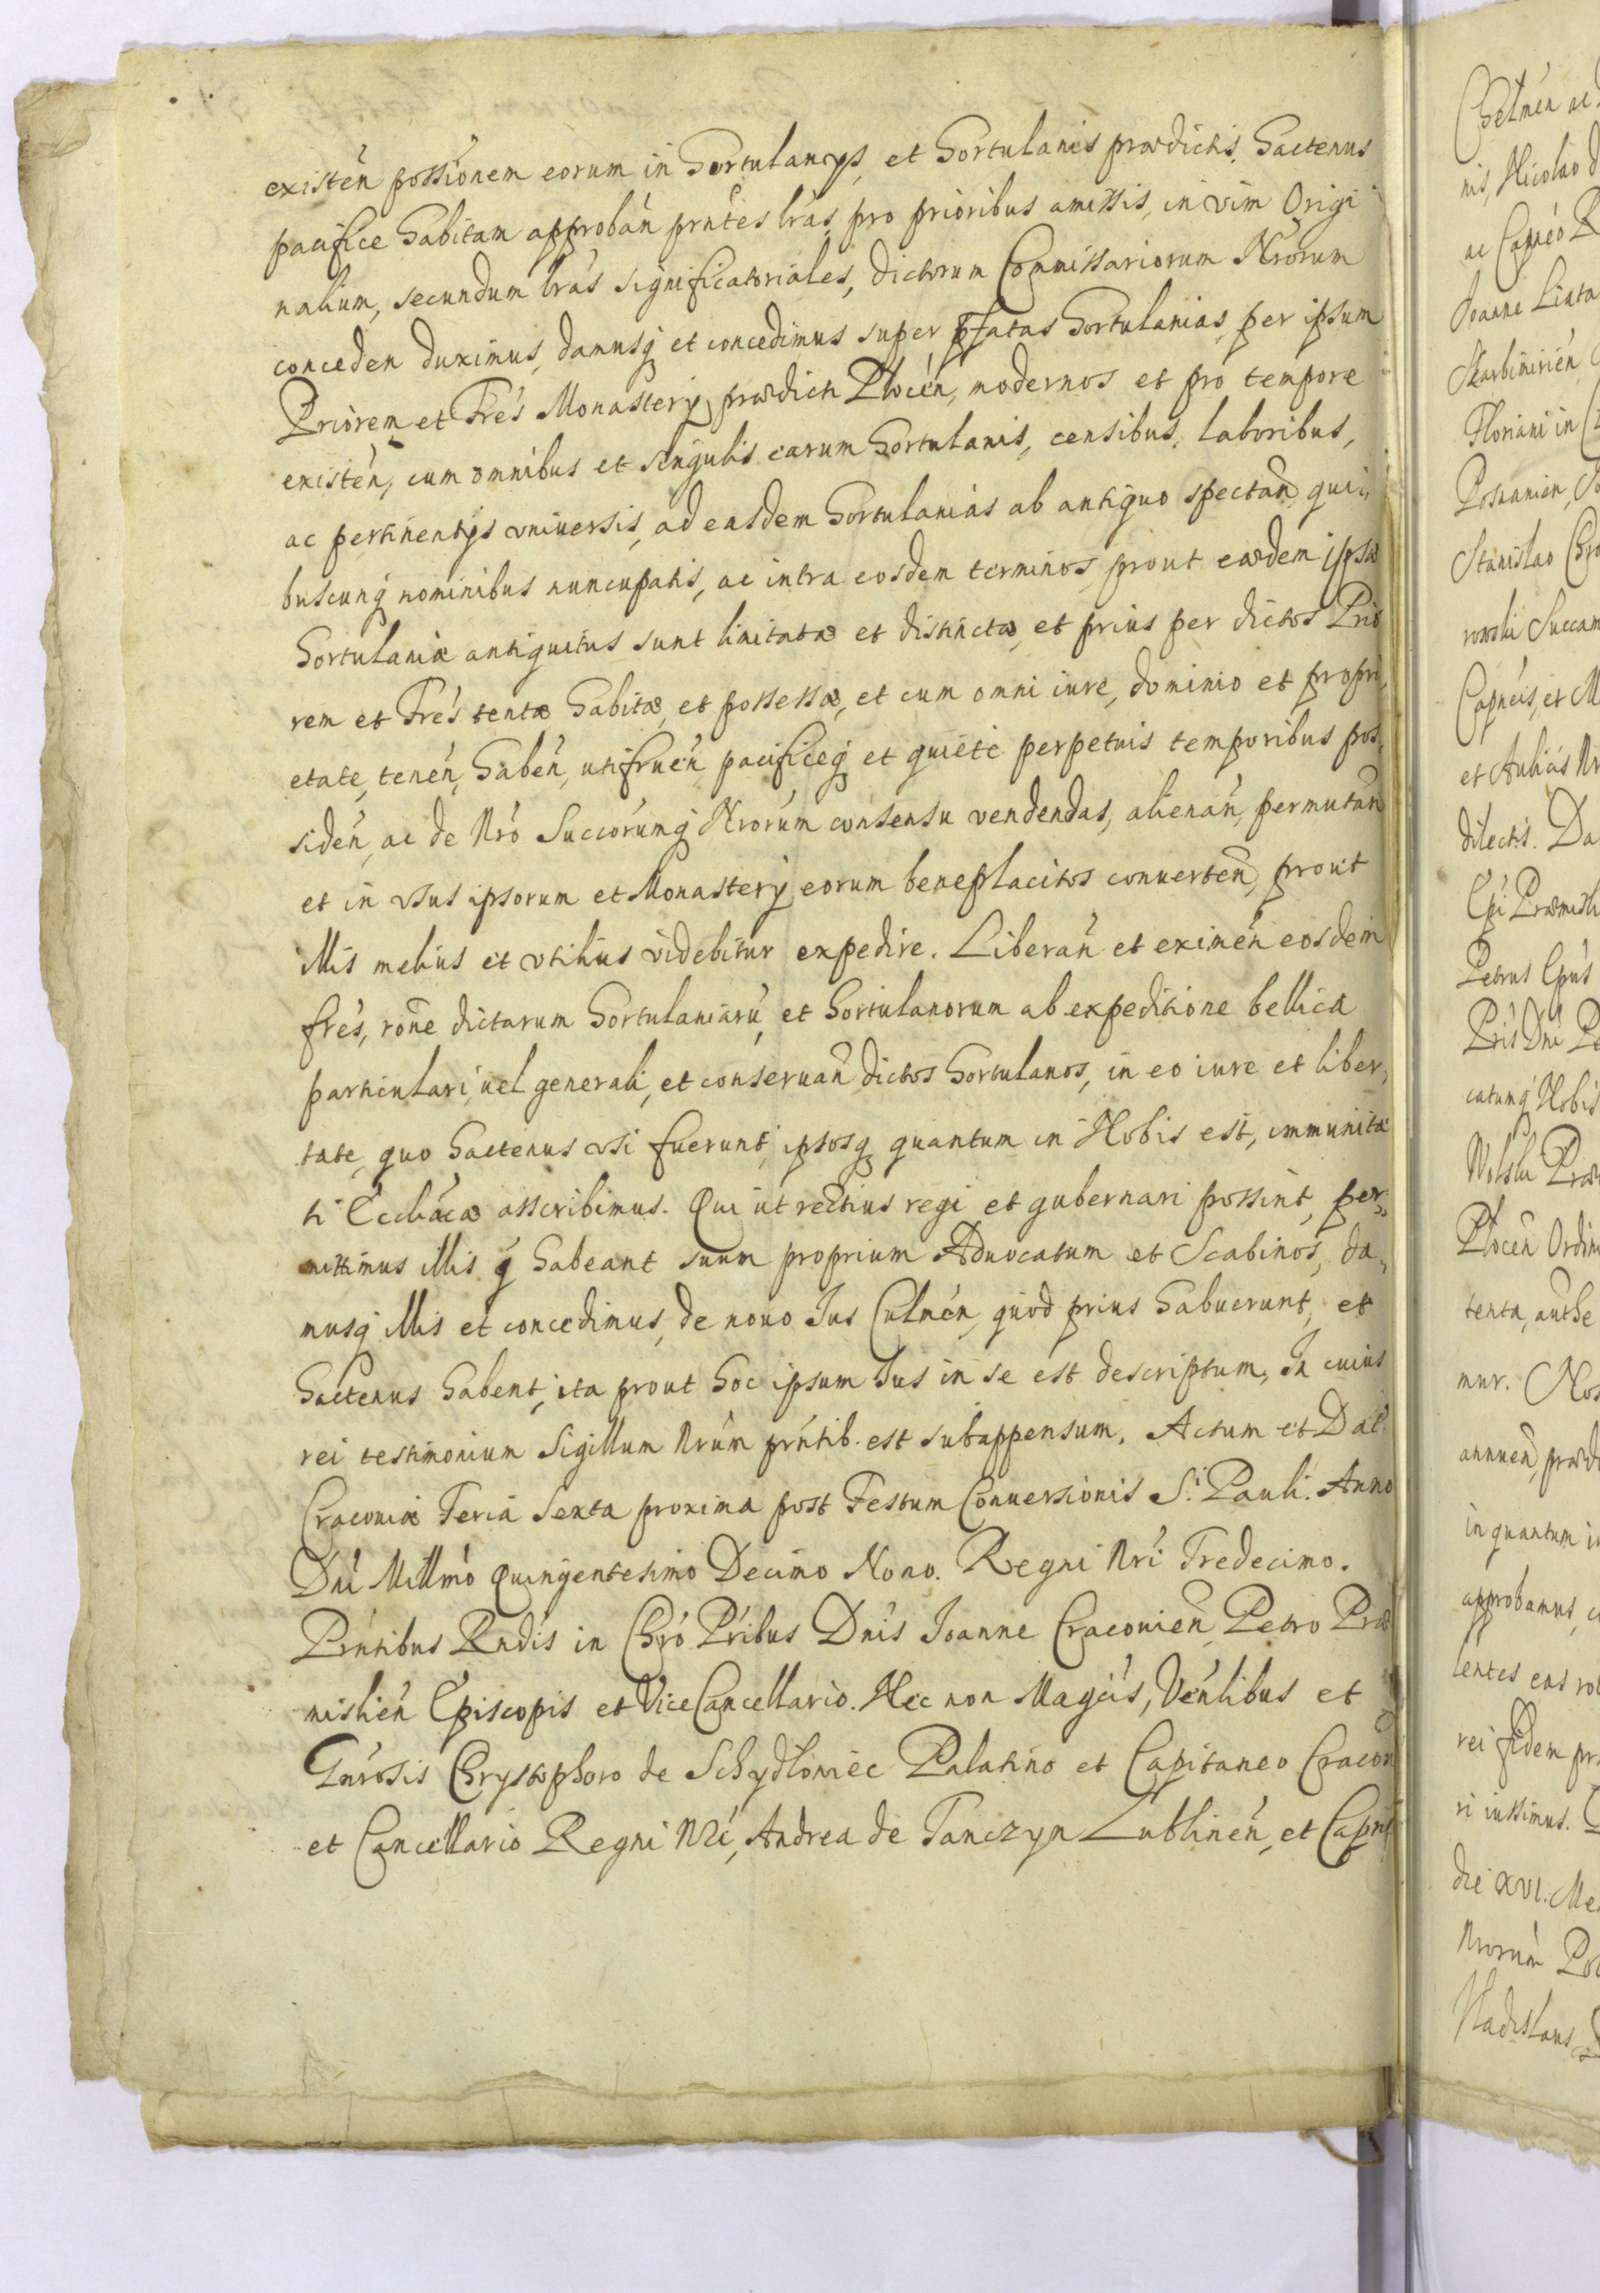 existeń possionem eorum in Hortulanys, et Hortulanis prædictis, hactenus
pacifice habitam approbań prntes lras, pro prioribus amissis, in vim Origi
nalium, secundum lras significatoriales, dictorum Commissariorum Nrorum
conceden duximus, damusq et concedimus super pfatas Hortulanias, per ipsum
Priorem et Frēs Monastery prædicti Płoceń, modernos et pro tempore
existeń, cum omnibus et singulis earum Hortulanis, censibus, laboribus,
ac pertinentys vniuersis, ad easdem Hortulanias ab antiquo spectań qui„
buscunq nominibus nuncupatis, ac intra eosdem terminos, prout eædem ipsæ
Hortulaniæ antiquitus sunt limitatæ et distinctæ, et prius per dictos Prio
rem et Frēs tentæ habitæ, et possessæ, et cum omni iure, dominio et propri„
etate, teneń, habeń, utifrueń pacificeq et quiete perpetuis temporibus pos„
sideń, ac de Nrō Succorumq Nrorum consensu vendendas, alienań, permutań
et in vsus ipsorum et Monastery eorum beneplacitos conuerteń, prout
illis melius et vtilius videbitur expedire. Liberań et eximeń eosdem
frēs, rōne dictarum Hortulaniarū, et Hortulanorum ab expeditione bellica
particulari, uel generali, et conseruań dictos Hortulanos, in eo iure et liber„
tate, quo hactenus vsi fuerunt, ipsosq quantum in Nobis est, immunita
ti Ecclīacæ asscribimus. Qui ut rectius regi et gubernari possint, per„
mittimus illis q habeant suum proprium Aduocatum et Scabinos, da„
musq illis et concedimus, de nouo Jus Culmeń, quod prius habuerunt, et
hactenus habent, ita prout hoc ipsum Jus in se est descriptum, In cuius
rei testimonium Sigillum Nrum prńtib. est subappensum. Actum et Dat
Cracouiæ Feria Sexta proxima post Festum Conuersionis S.i Pauli. Anno
Dnī Millmo Quingentesimo Decimo Nono. Regni Nrī Tredecimo.
Prńtibus Rndis in Chrō Pribus Dnīs Joanne Cracouień, Petro Præ
mislień Episcopis et ViceCancellario. Nec non Magcis, Venlibus et
Gnrosis Chrystophoro de Schydłowiec Palatino et Capitaneo Cracou
et Cancellario Regni Nrī, Andrea de Tanczyn Lublineń, et Capn

Chełmeń ac
nis, Nicolao d
ac Capneo R
Joanne Liata
Skarbimirień,
Floriani in
Posnanień,
Stanislao Chro
rowski Succam
Capneis, et M
et Aulicis Nr
dilectis. Da
Epi Præmisli
Petrus Epus
Pris Dni Pe
catumq Nobis
Wolski Præ
Płoceń Ordin
tenta, authe
mur. Nos
annueń, præd
in quantum
approbamus,
lentes eas ro
rei fidem pr
ri iussimus.
die XVI. Me
Nrorum Po
Vladislaus